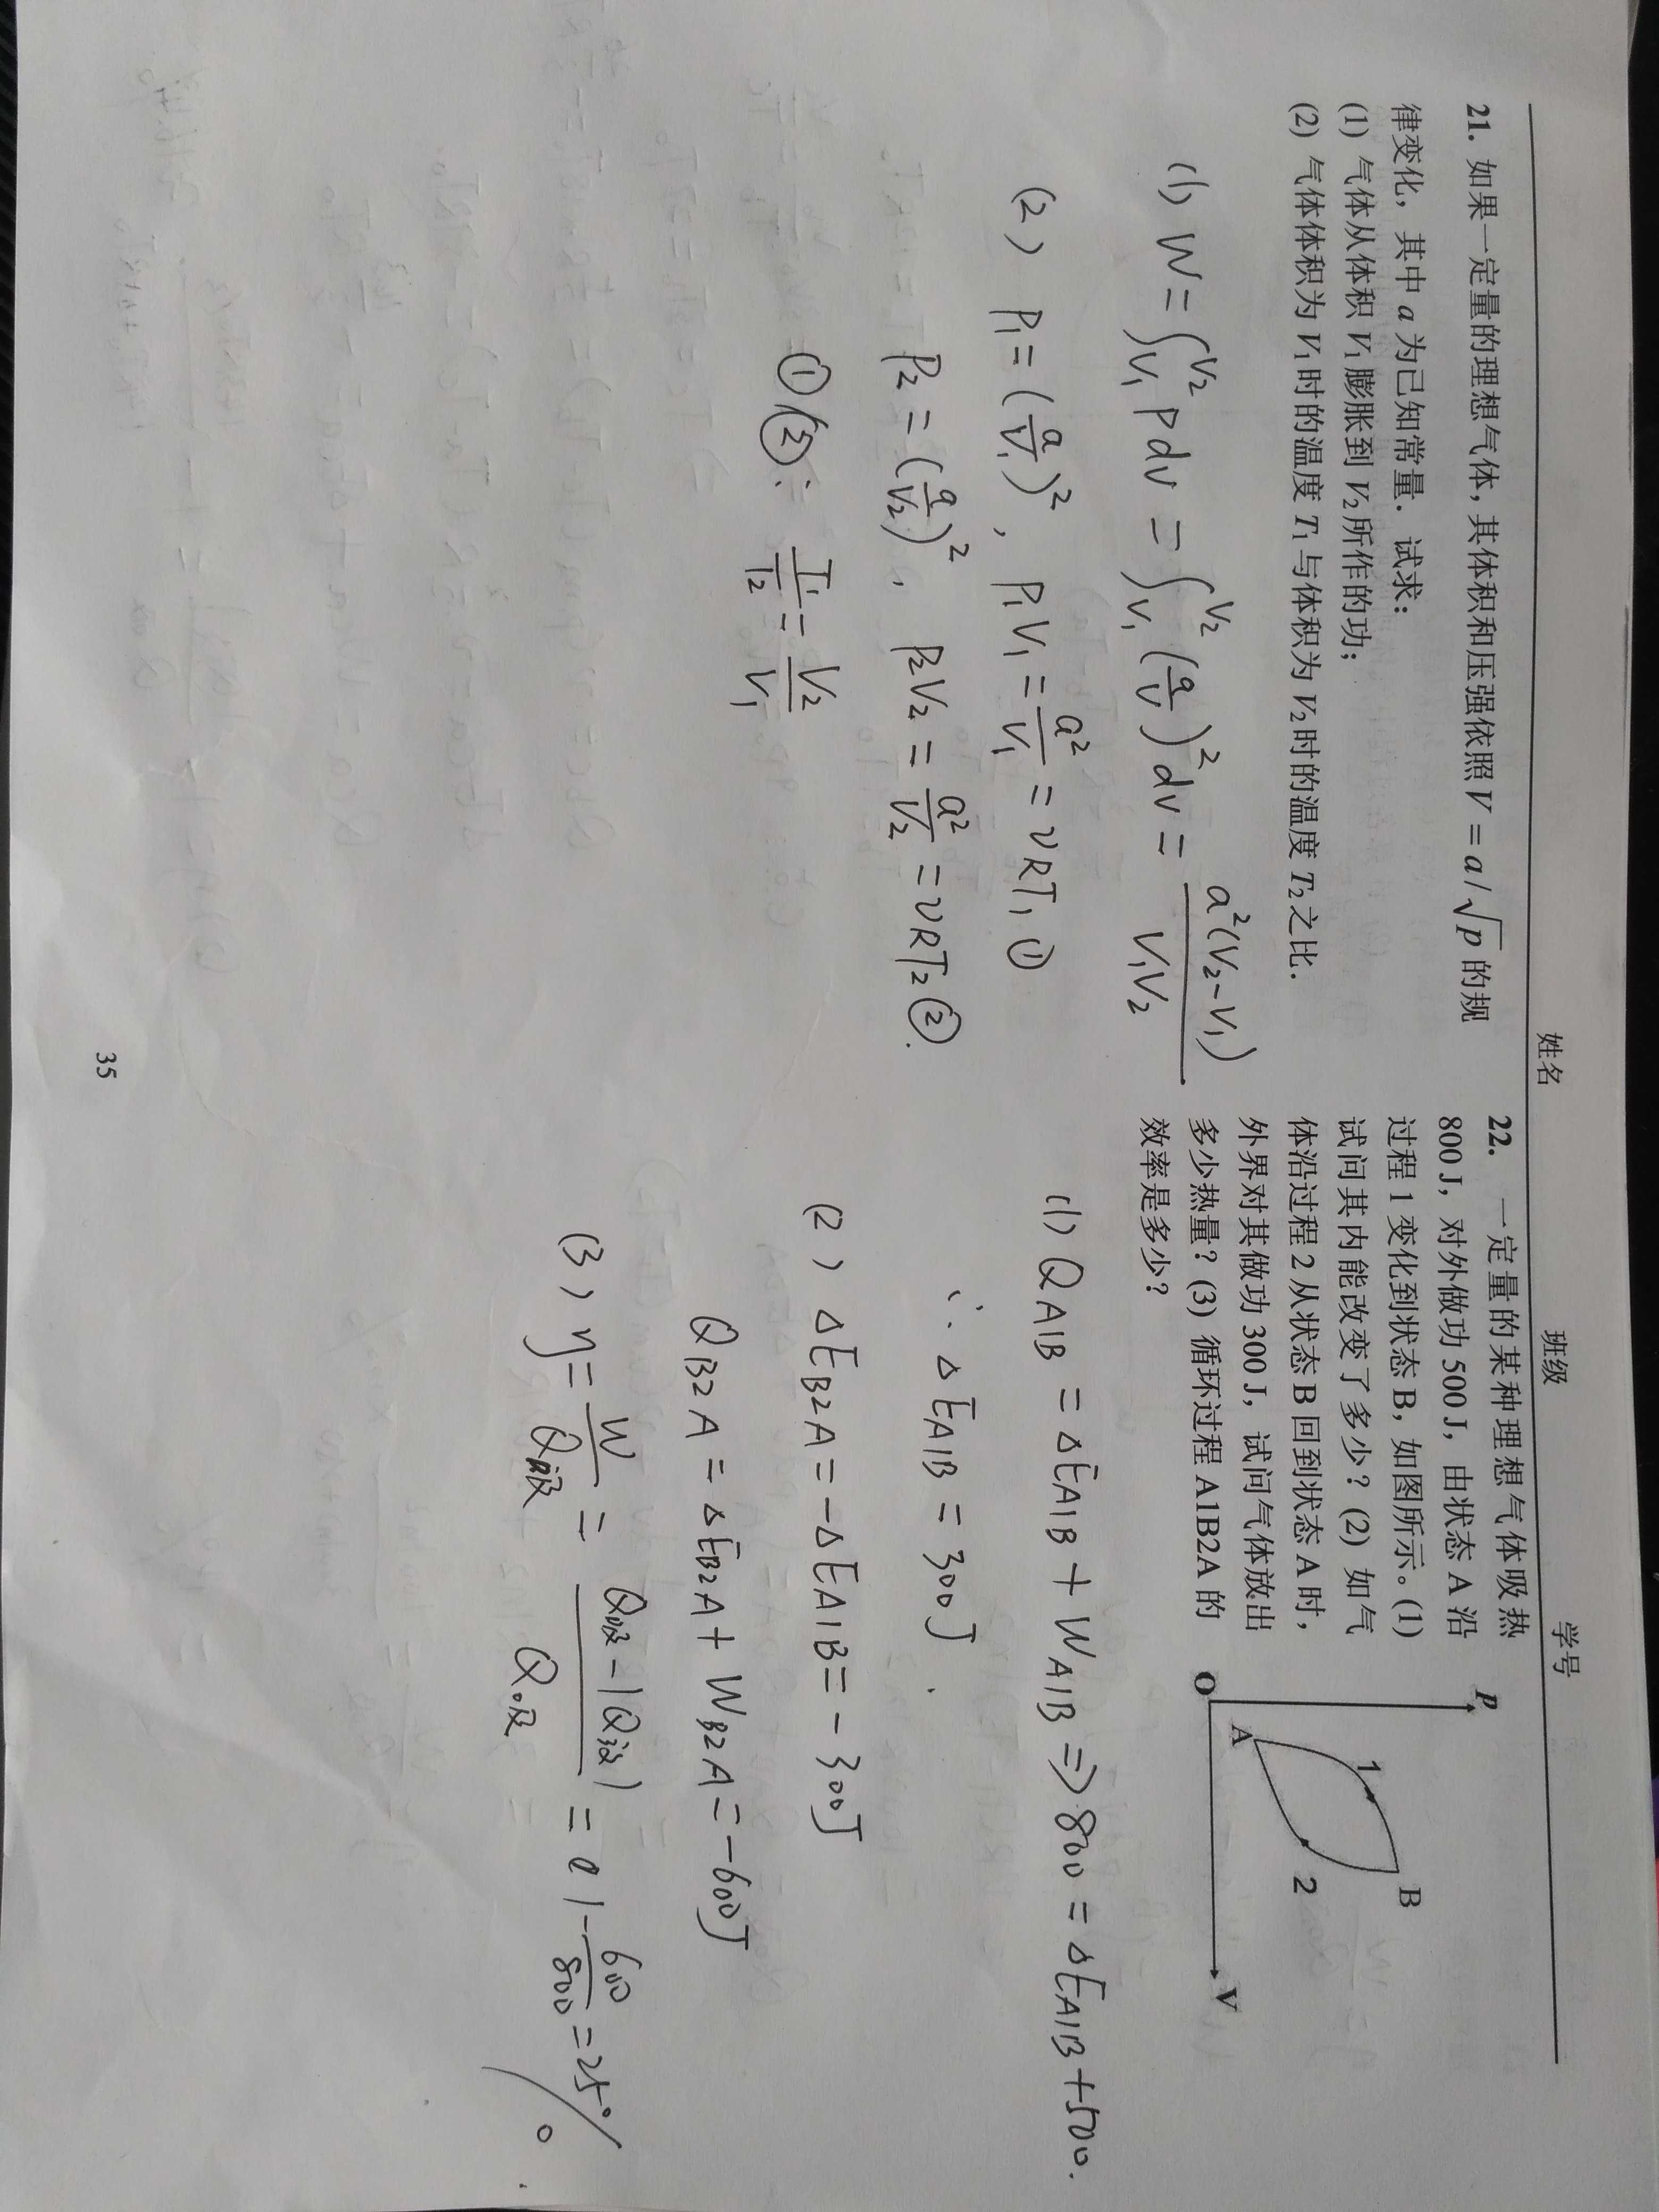 姓名 班级 学号
21. 如果一定量的理想气体，其体积和压强依照 V = a/√p 的规
律变化，其中 a 为已知常量．试求：
(1) 气体从体积 V₁ 膨胀到 V₂ 所作的功；
(2) 气体体积为 V₁ 时的温度 T₁ 与体积为 V₂ 时的温度 T₂ 之比．
(1) W = ∫_{V₁}^{V₂} p dv = ∫_{V₁}^{V₂} (a/V)² dv = a²(V₂-V₁)/V₁V₂
(2) P₁ = (a/V₁)², P₁V₁ = a²/V₁ = νRT₁ ①
P₂ = (a/V₂)², P₂V₂ = a²/V₂ = νRT₂ ②.
①/②: T₁/T₂ = V₂/V₁
22. 一定量的某种理想气体吸热
800 J，对外做功 500 J，由状态 A 沿
过程 1 变化到状态 B，如图所示。(1)
试问其内能改变了多少？(2) 如气
体沿过程 2 从状态 B 回到状态 A 时，
外界对其做功 300 J，试问气体放出
多少热量？(3) 循环过程 A1B2A 的
效率是多少？
P
1
B
2
A
O
V
(1) Q_{A1B} = ΔE_{A1B} + W_{A1B} ⇒ 800 = ΔE_{A1B} + 500.
∴ ΔE_{A1B} = 300J.
(2) ΔE_{B2A} = -ΔE_{A1B} = -300J
Q_{B2A} = ΔE_{B2A} + W_{B2A} = -600J
(3) η = W/Q吸 = (Q吸 - |Q放|)/Q吸 = 1 - 600/800 = 25%
35